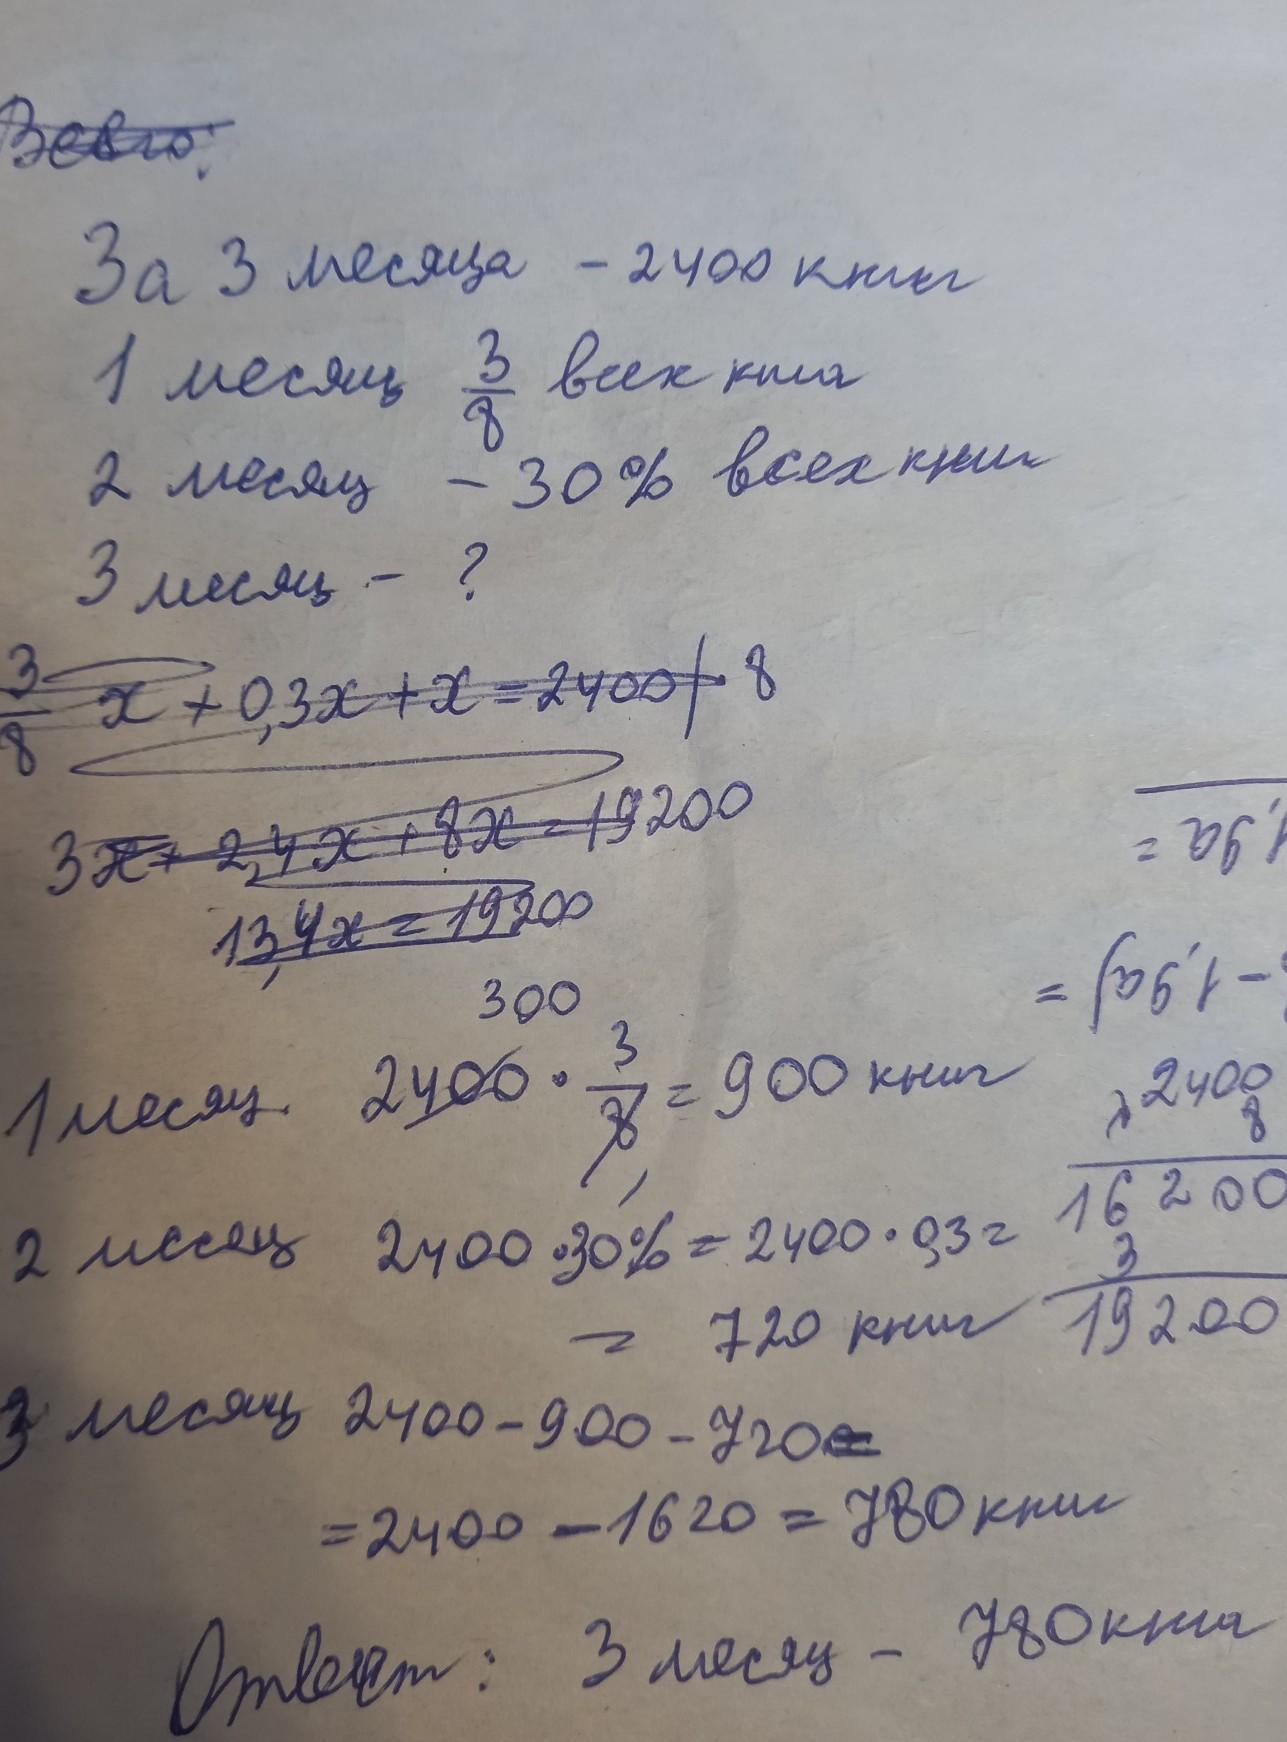 Всего:
За 3 месяца - 2400 книг
1 месяц 3/8 всех книг
2 месяц - 30% всех книг
3 месяц - ?
3/8 x + 0,3x + x = 2400 | · 8
3x + 2,4x + 8x = 19200
13,4x = 19200
300
1 месяц 2400 · 3/8 = 900 книг
2 месяц 2400 · 30% = 2400 · 0,3 =
= 720 книг
3 месяц 2400 - 900 - 720 =
= 2400 - 1620 = 780 книг
Ответ: 3 месяц - 780 книг
1,9a =
- 1,9a) =
x 2400
8
16 200
3
19200